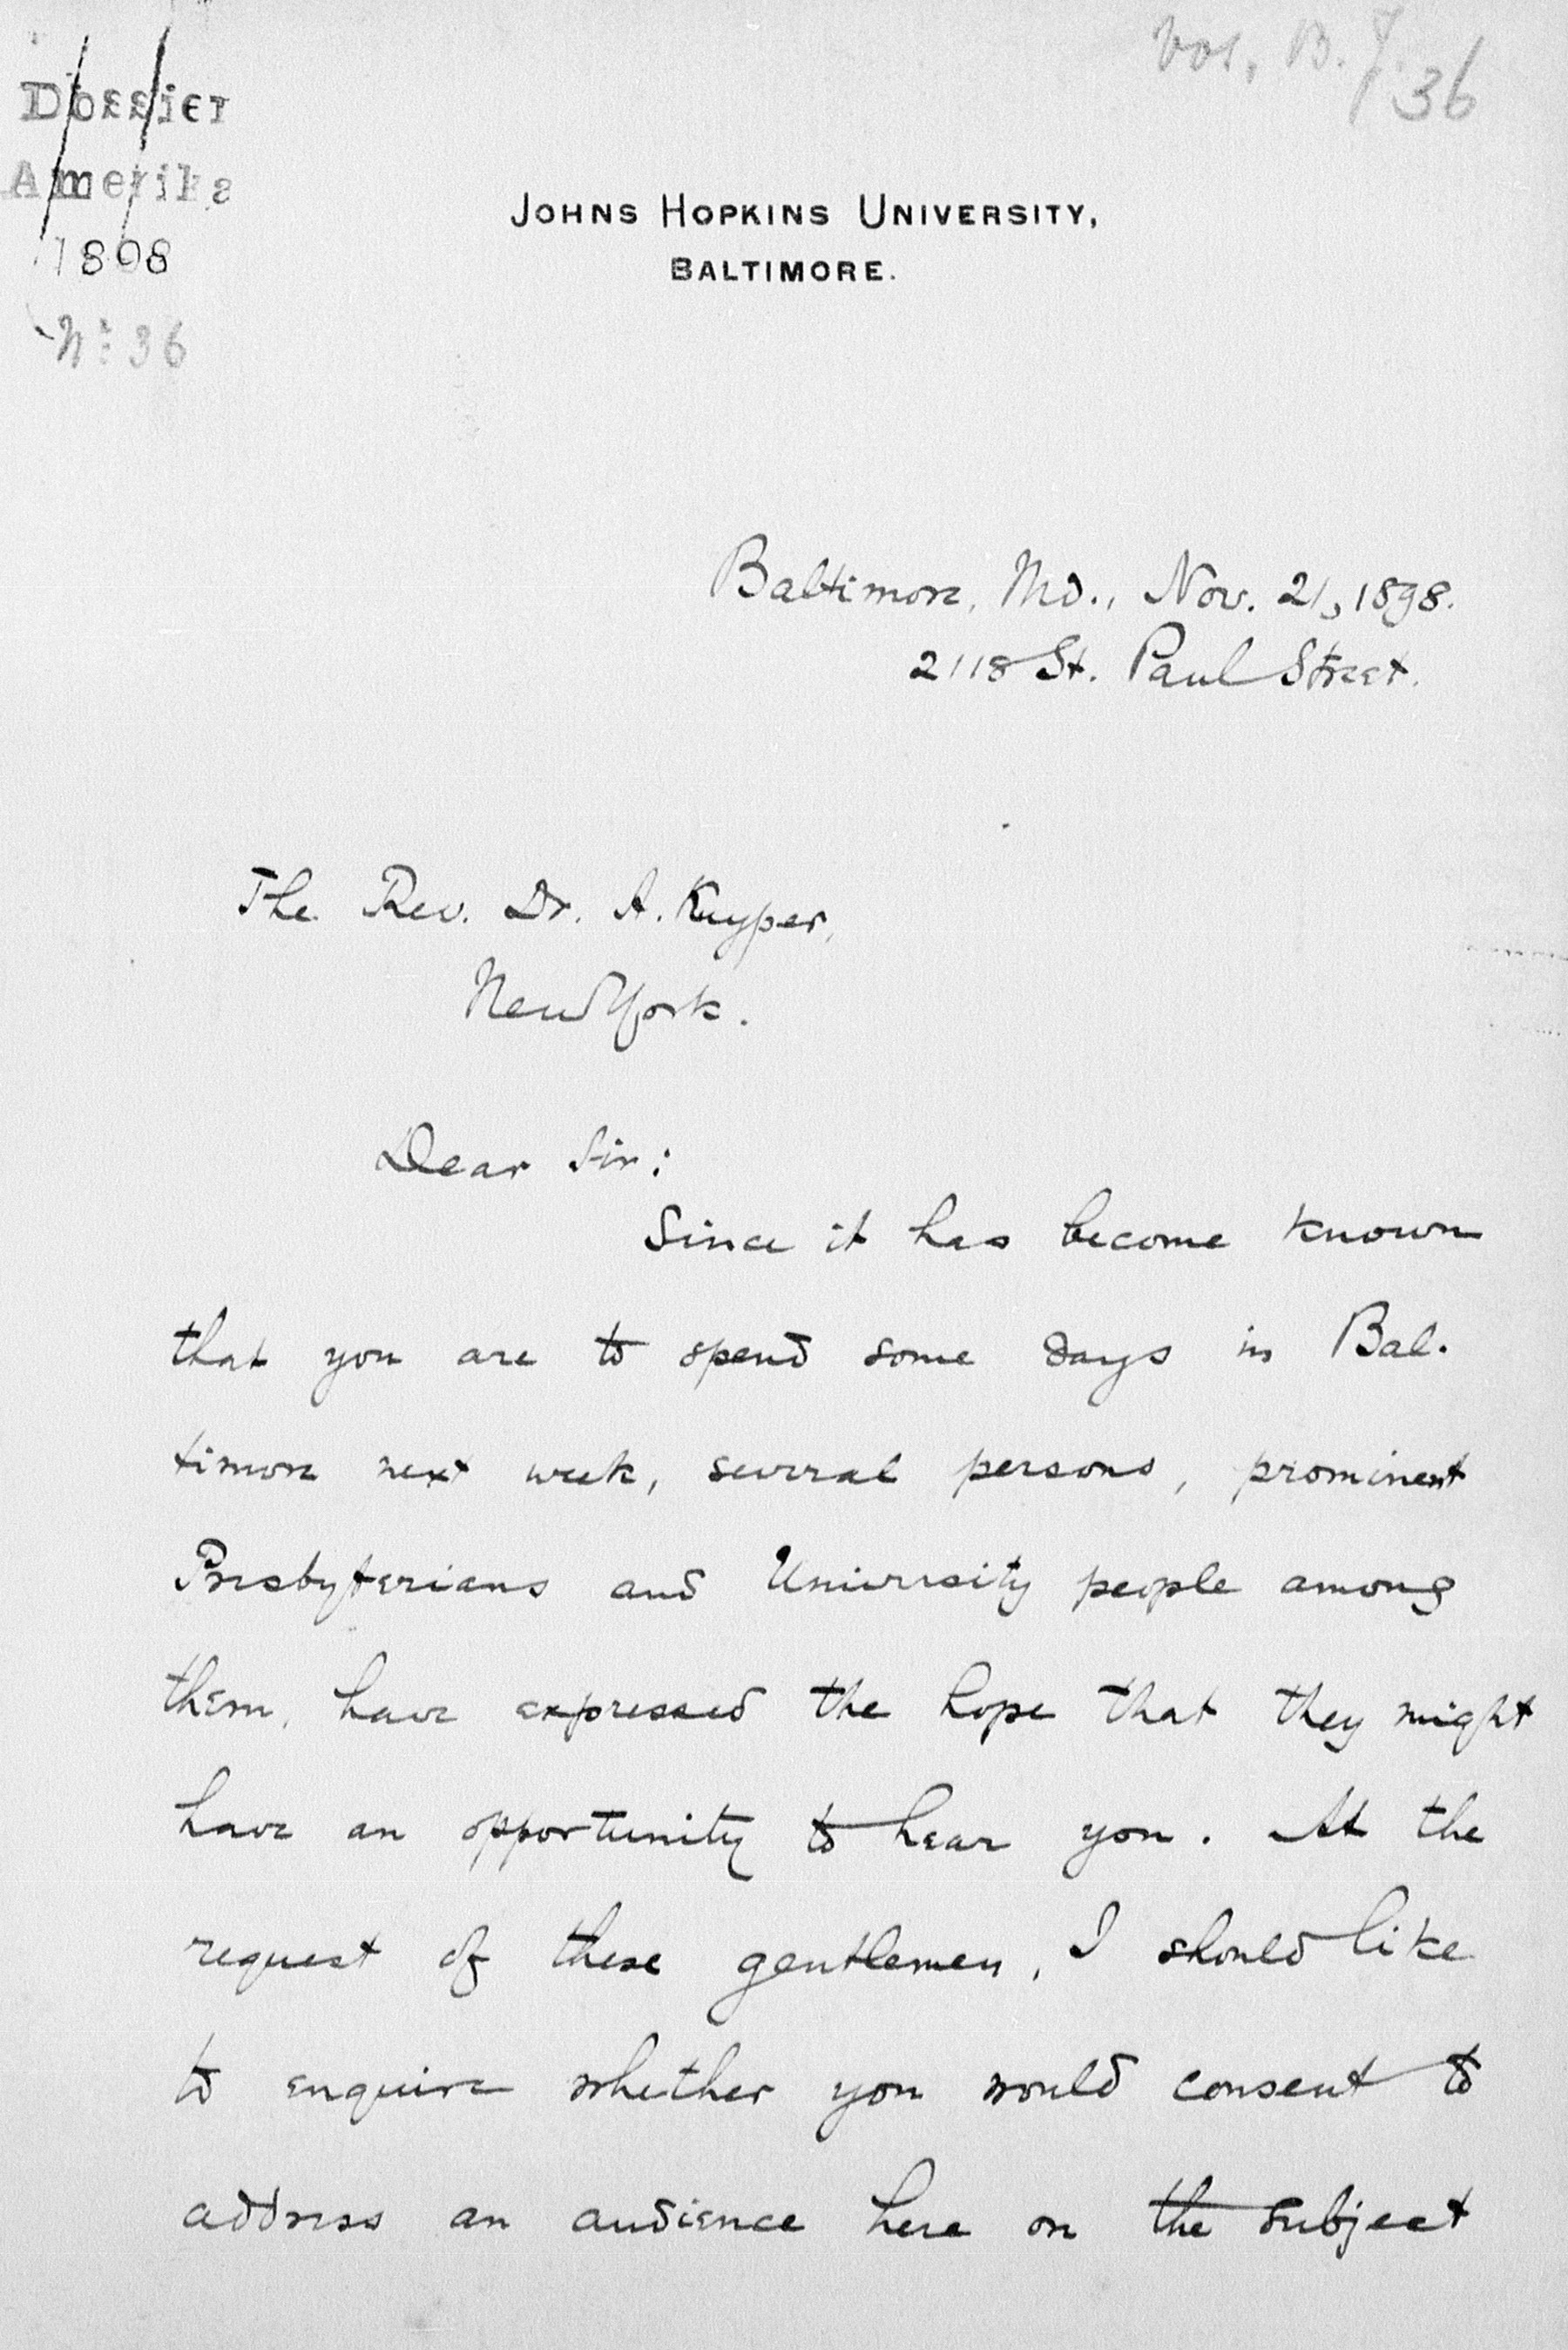 Dossier
Amerika
1898
No 36
36
JOHNS HOPKINS UNIVERSITY,
BALTIMORE.
Baltimore, Md., Nov. 21, 1898.
2118 St. Paul Street.
The Rev. Dr. A. Kuyper,
New York.
Dear Sir:
Since it has become known
that you are to spend some days in Bal-
timore next week, several persons, prominent
Presbyterians and University people among
them, have expressed the hope that they might
have an opportunity to hear you. At the
request of these gentlemen, I should like
to enquire whether you would consent to
address an audience here on the subject